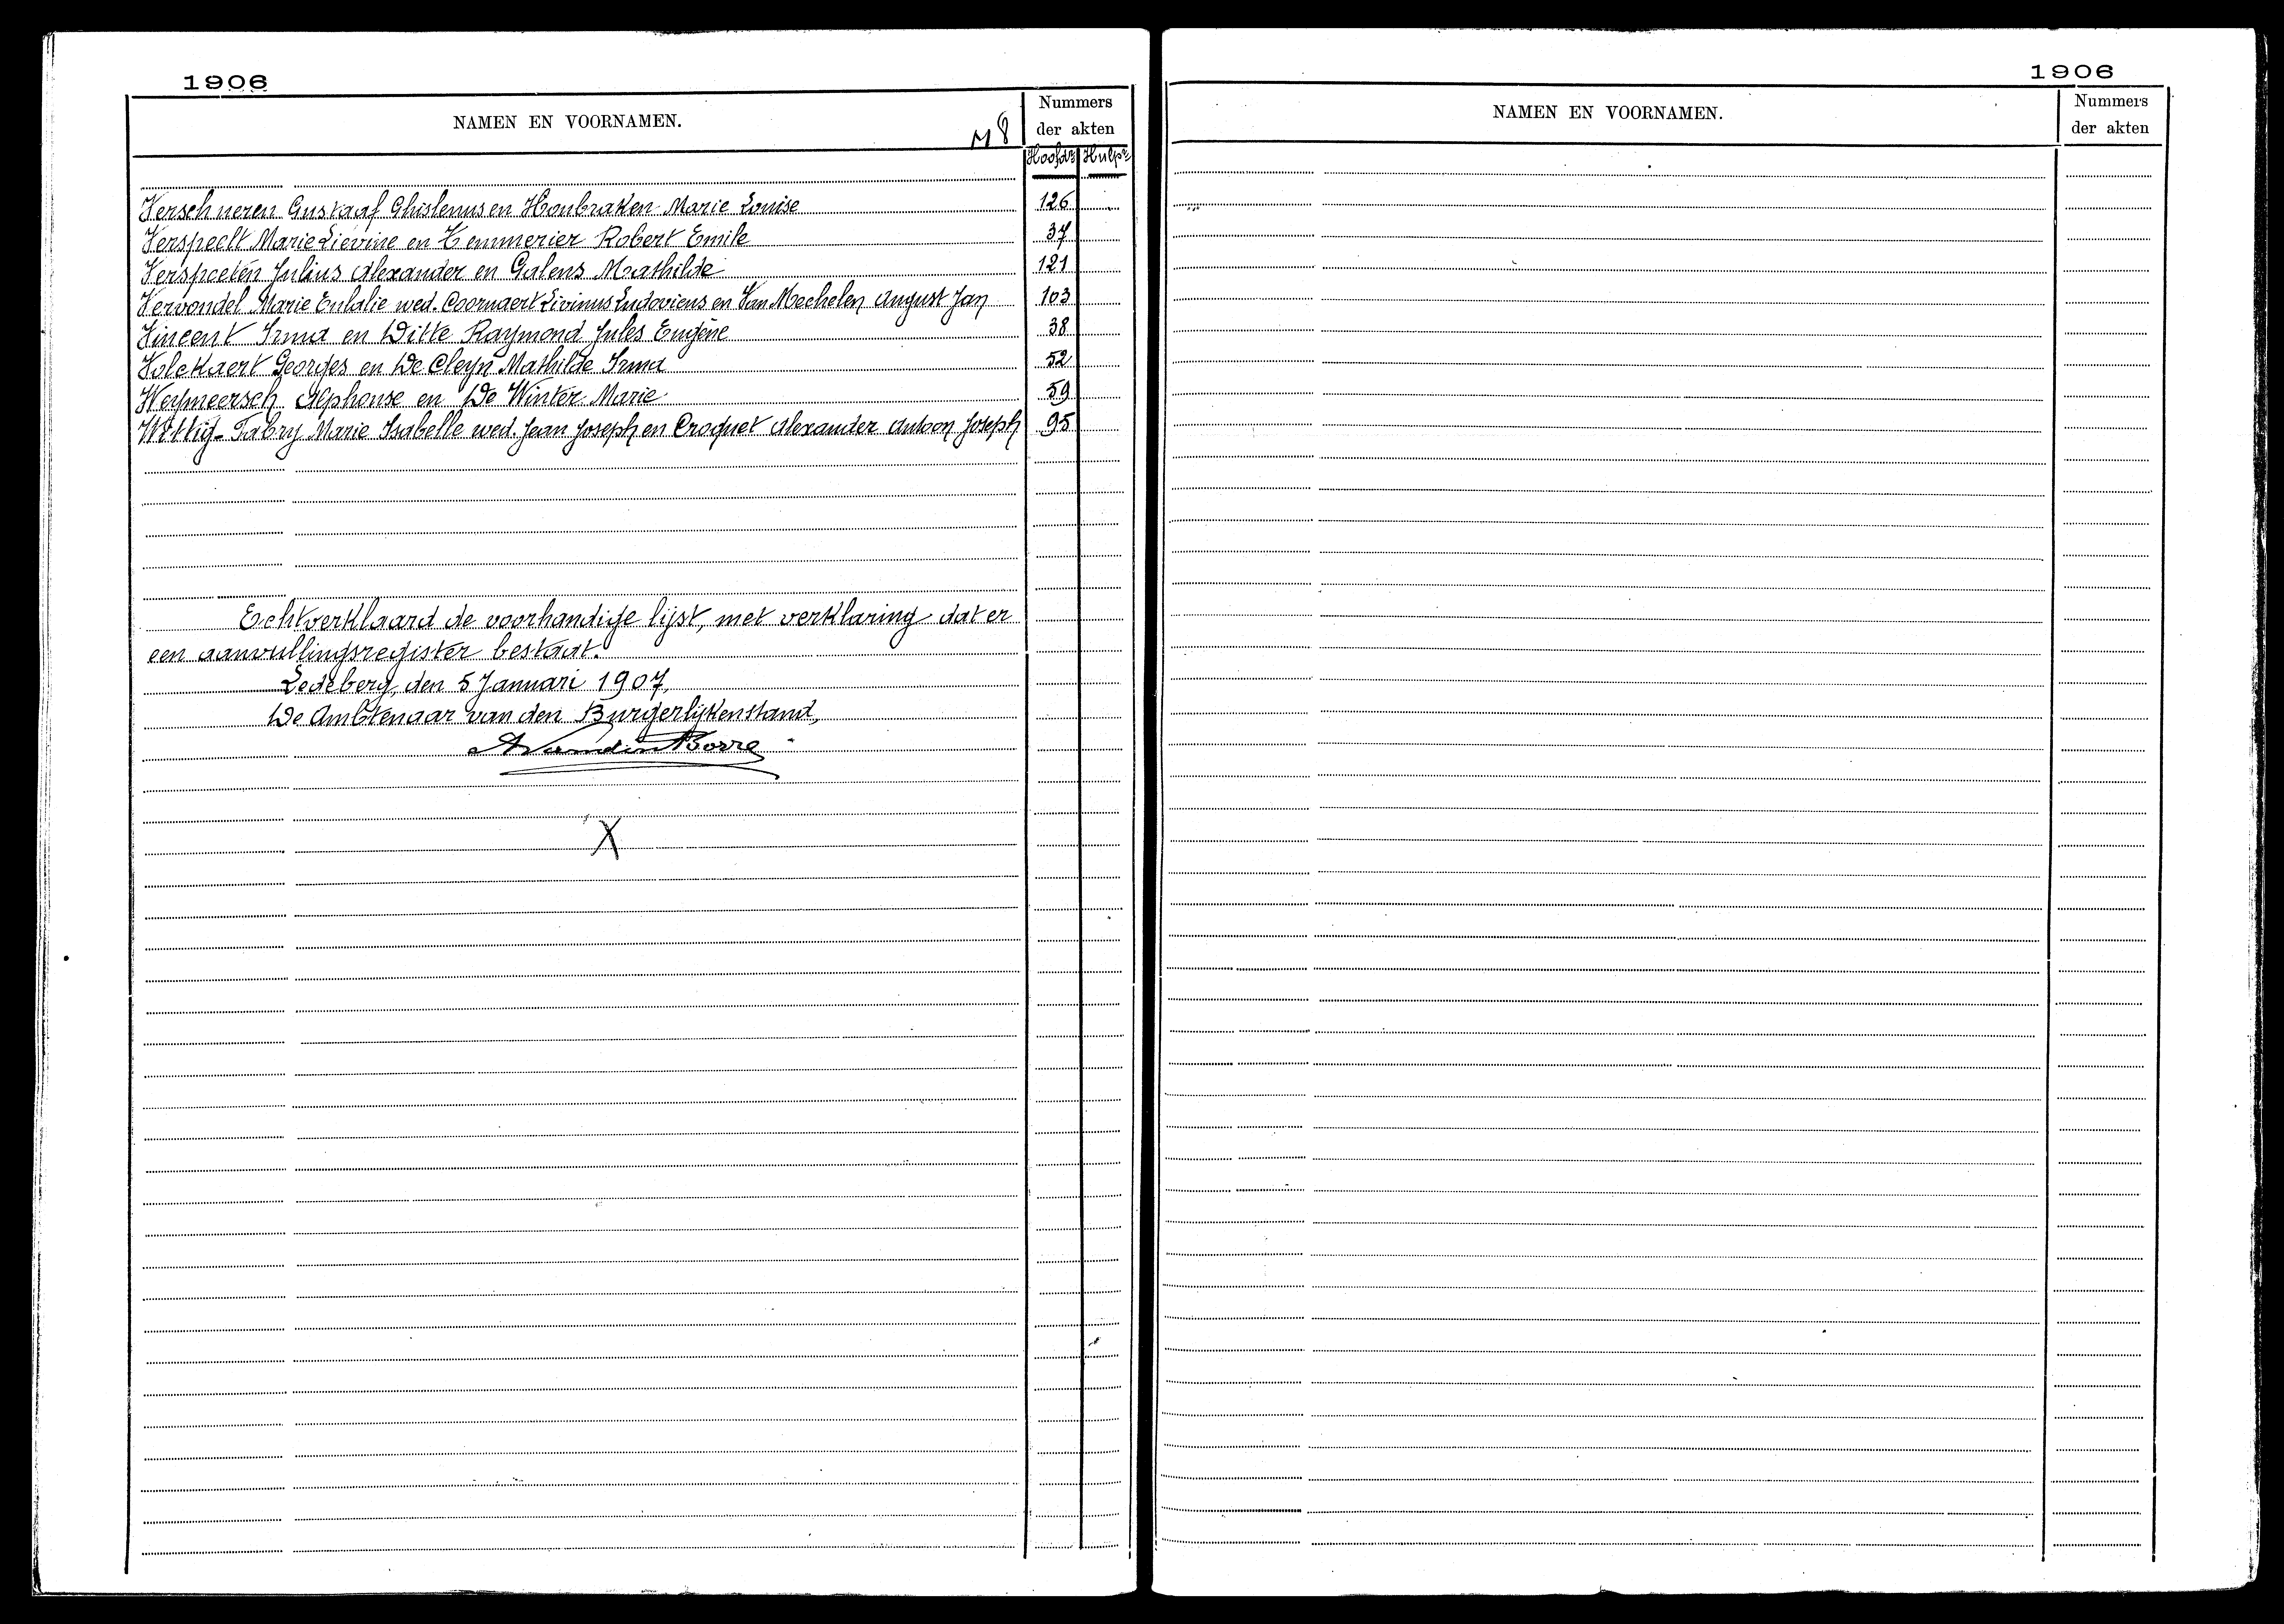 1906
NAMEN EN VOORNAMEN.
M 8
Nummers
der akten
Hoofdr Hulpr
Verschueren Gustaaf Ghislenus en Houbraken Marie Louise 126
Verspeelt Marie Liévine en Temmerier Robert Emile 37
Verspeeten Julius Alexander en Galens Mathilde 121
Vervondel Marie Eulalie wed. Coornaert Livinus Ludovicus en Van Mechelen August Jan 103
Vincent Irma en Witte Raymond Jules Eugène 38
Volckaert Georges en De Cleyn Mathilde Irma 52
Weymeersch Alphonse en De Winter Marie 59
Fabry Marie Isabelle wed. Jean Joseph en Croquet Alexander Antoon Joseph 95
Echtverklaard de voorhandige lijst, met verklaring dat er
een aanvullingsregister bestaat.
Ledeberg, den 5 Januari 1907,
De Ambtenaar van den Burgerlijkenstand,
X
1906
NAMEN EN VOORNAMEN.
Nummers
der akten